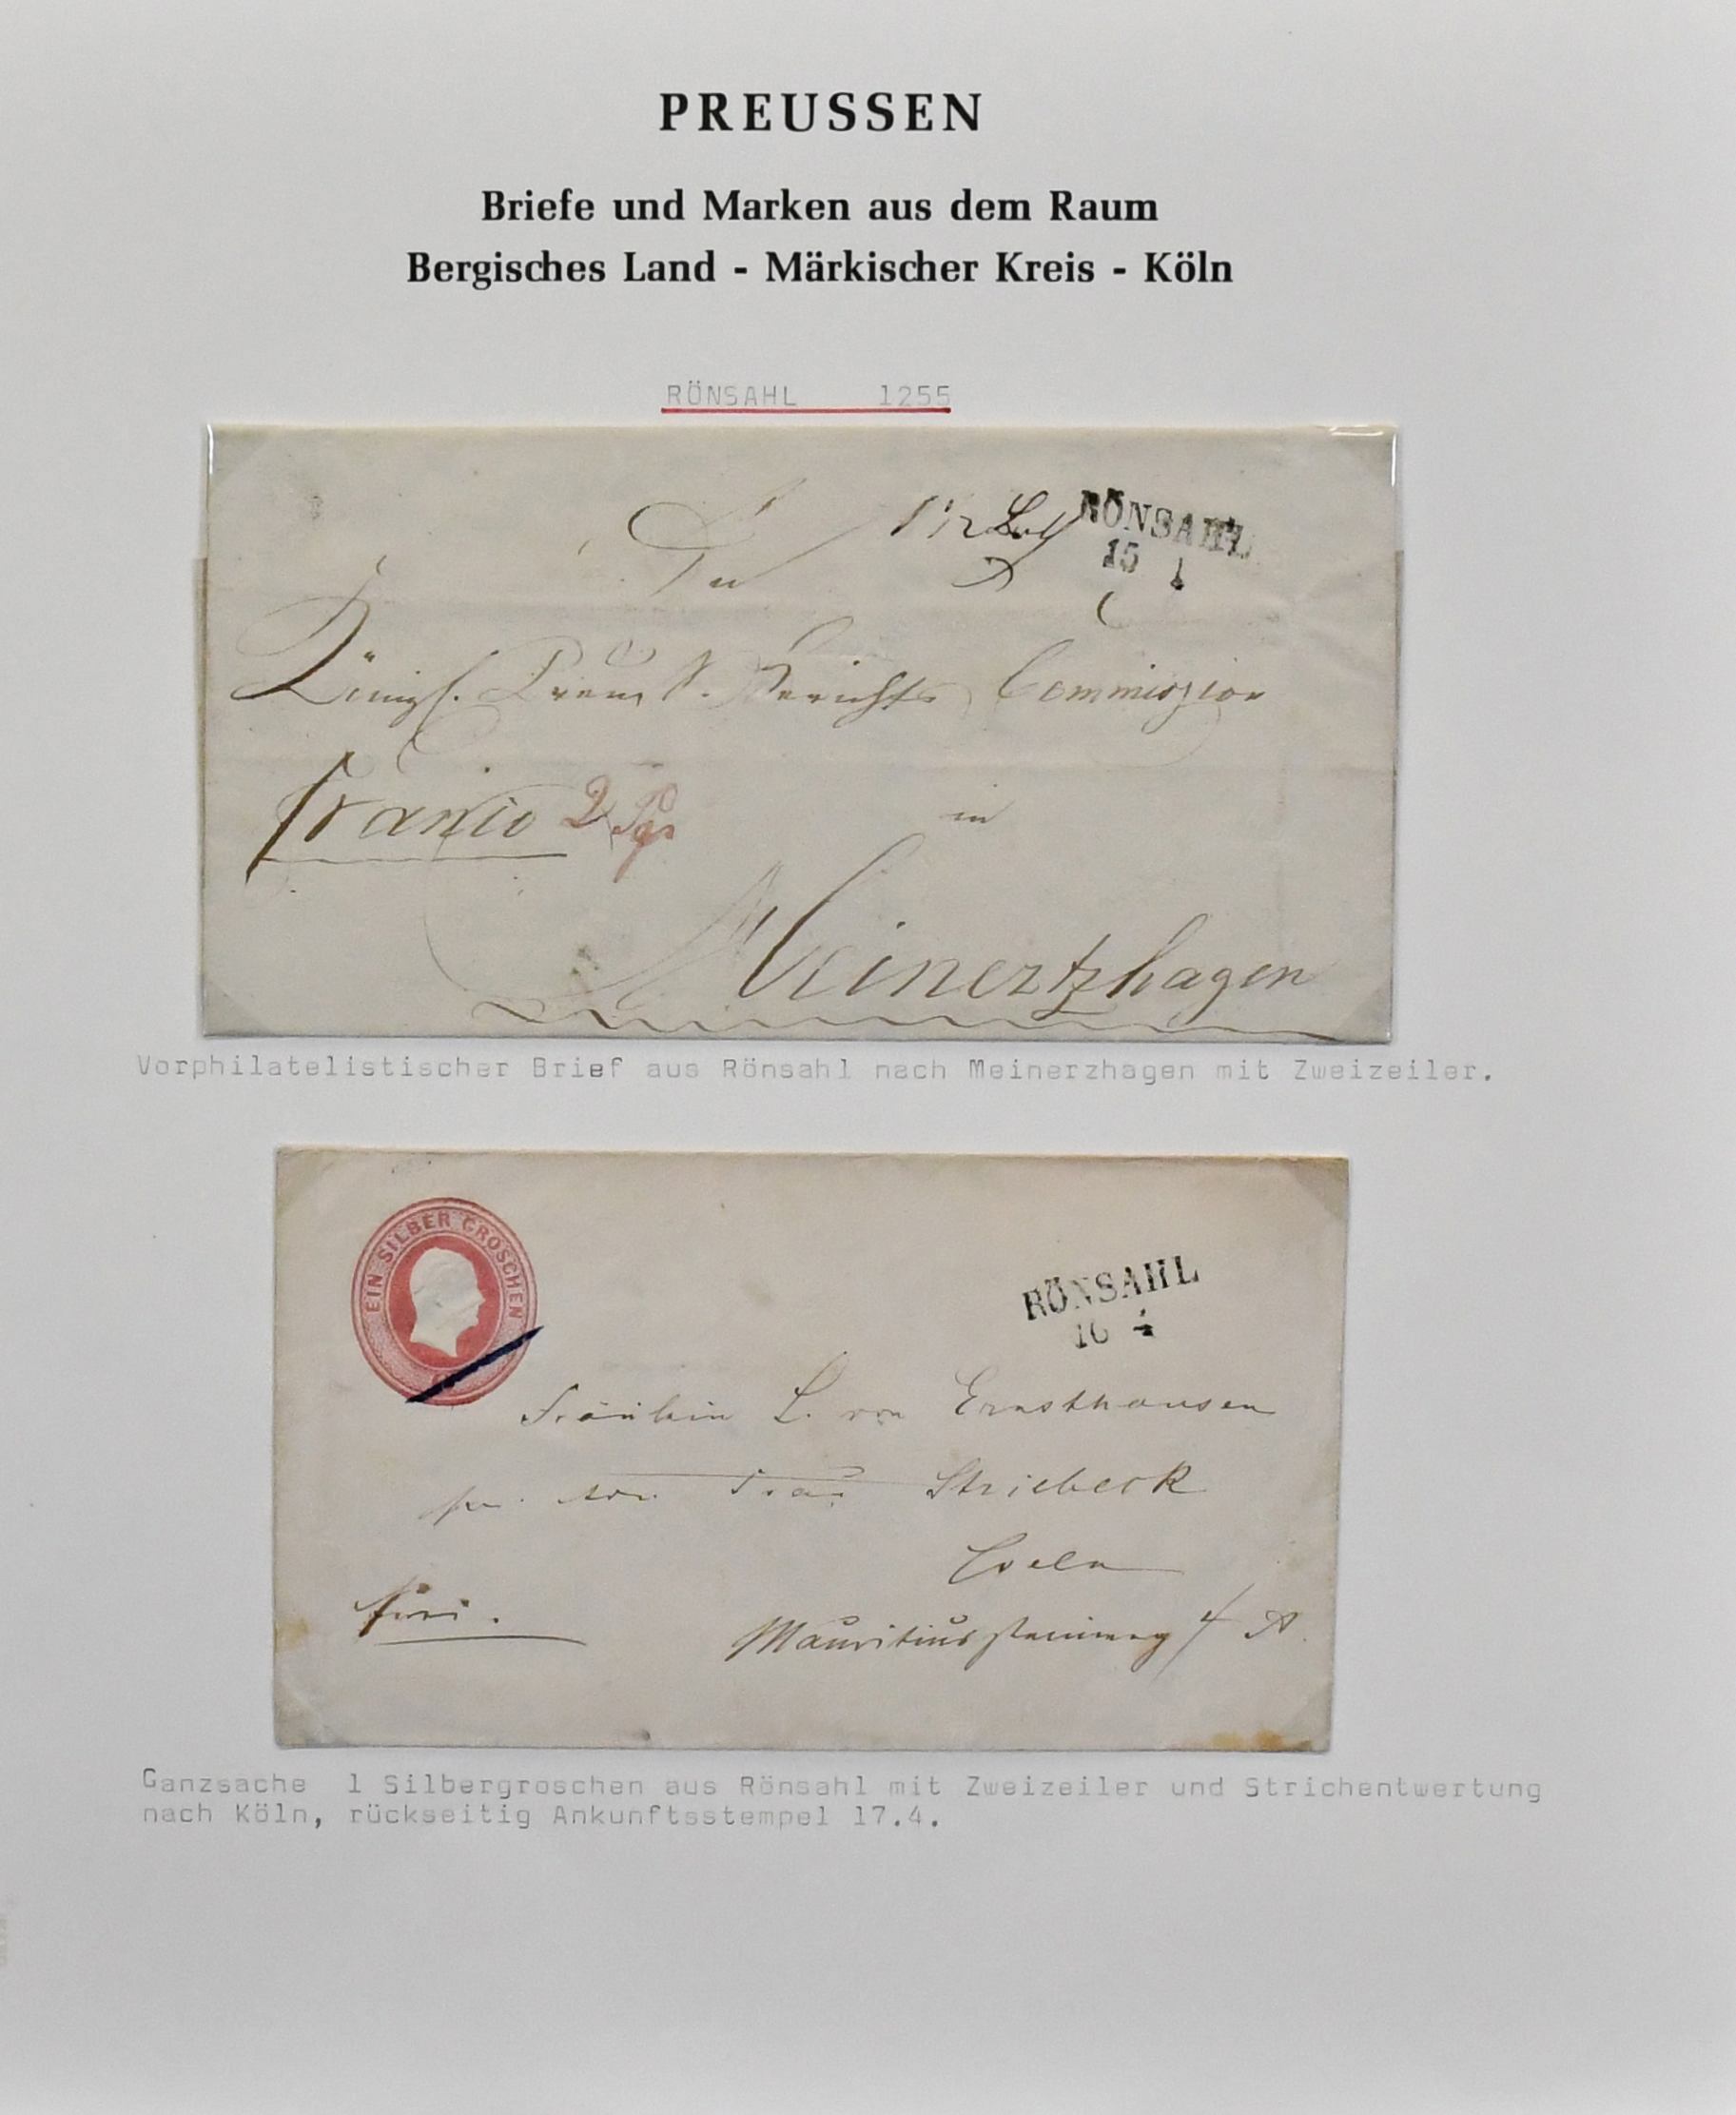 PREUSSEN
Briefe und Marken aus dem Raum
Bergisches Land - Märkischer Kreis - Köln
RÖNSAHL 1255
RÖNSAHL
15 1
Königl. Preuß. Gerichts Commission
franco 2 Sgr
in
Meinertzhagen
Vorphilatelistischer Brief aus Rönsahl nach Meinerzhagen mit Zweizeiler.
EIN SILBER GROSCHEN
RÖNSAHL
16 4
Fräulein L. von Ernsthausen
Frau Striebeck
Coeln
Mauritiussteinweg 4 A.
Ganzsache 1 Silbergroschen aus Rönsahl mit Zweizeiler und Strichentwertung
nach Köln, rückseitig Ankunftsstempel 17.4.